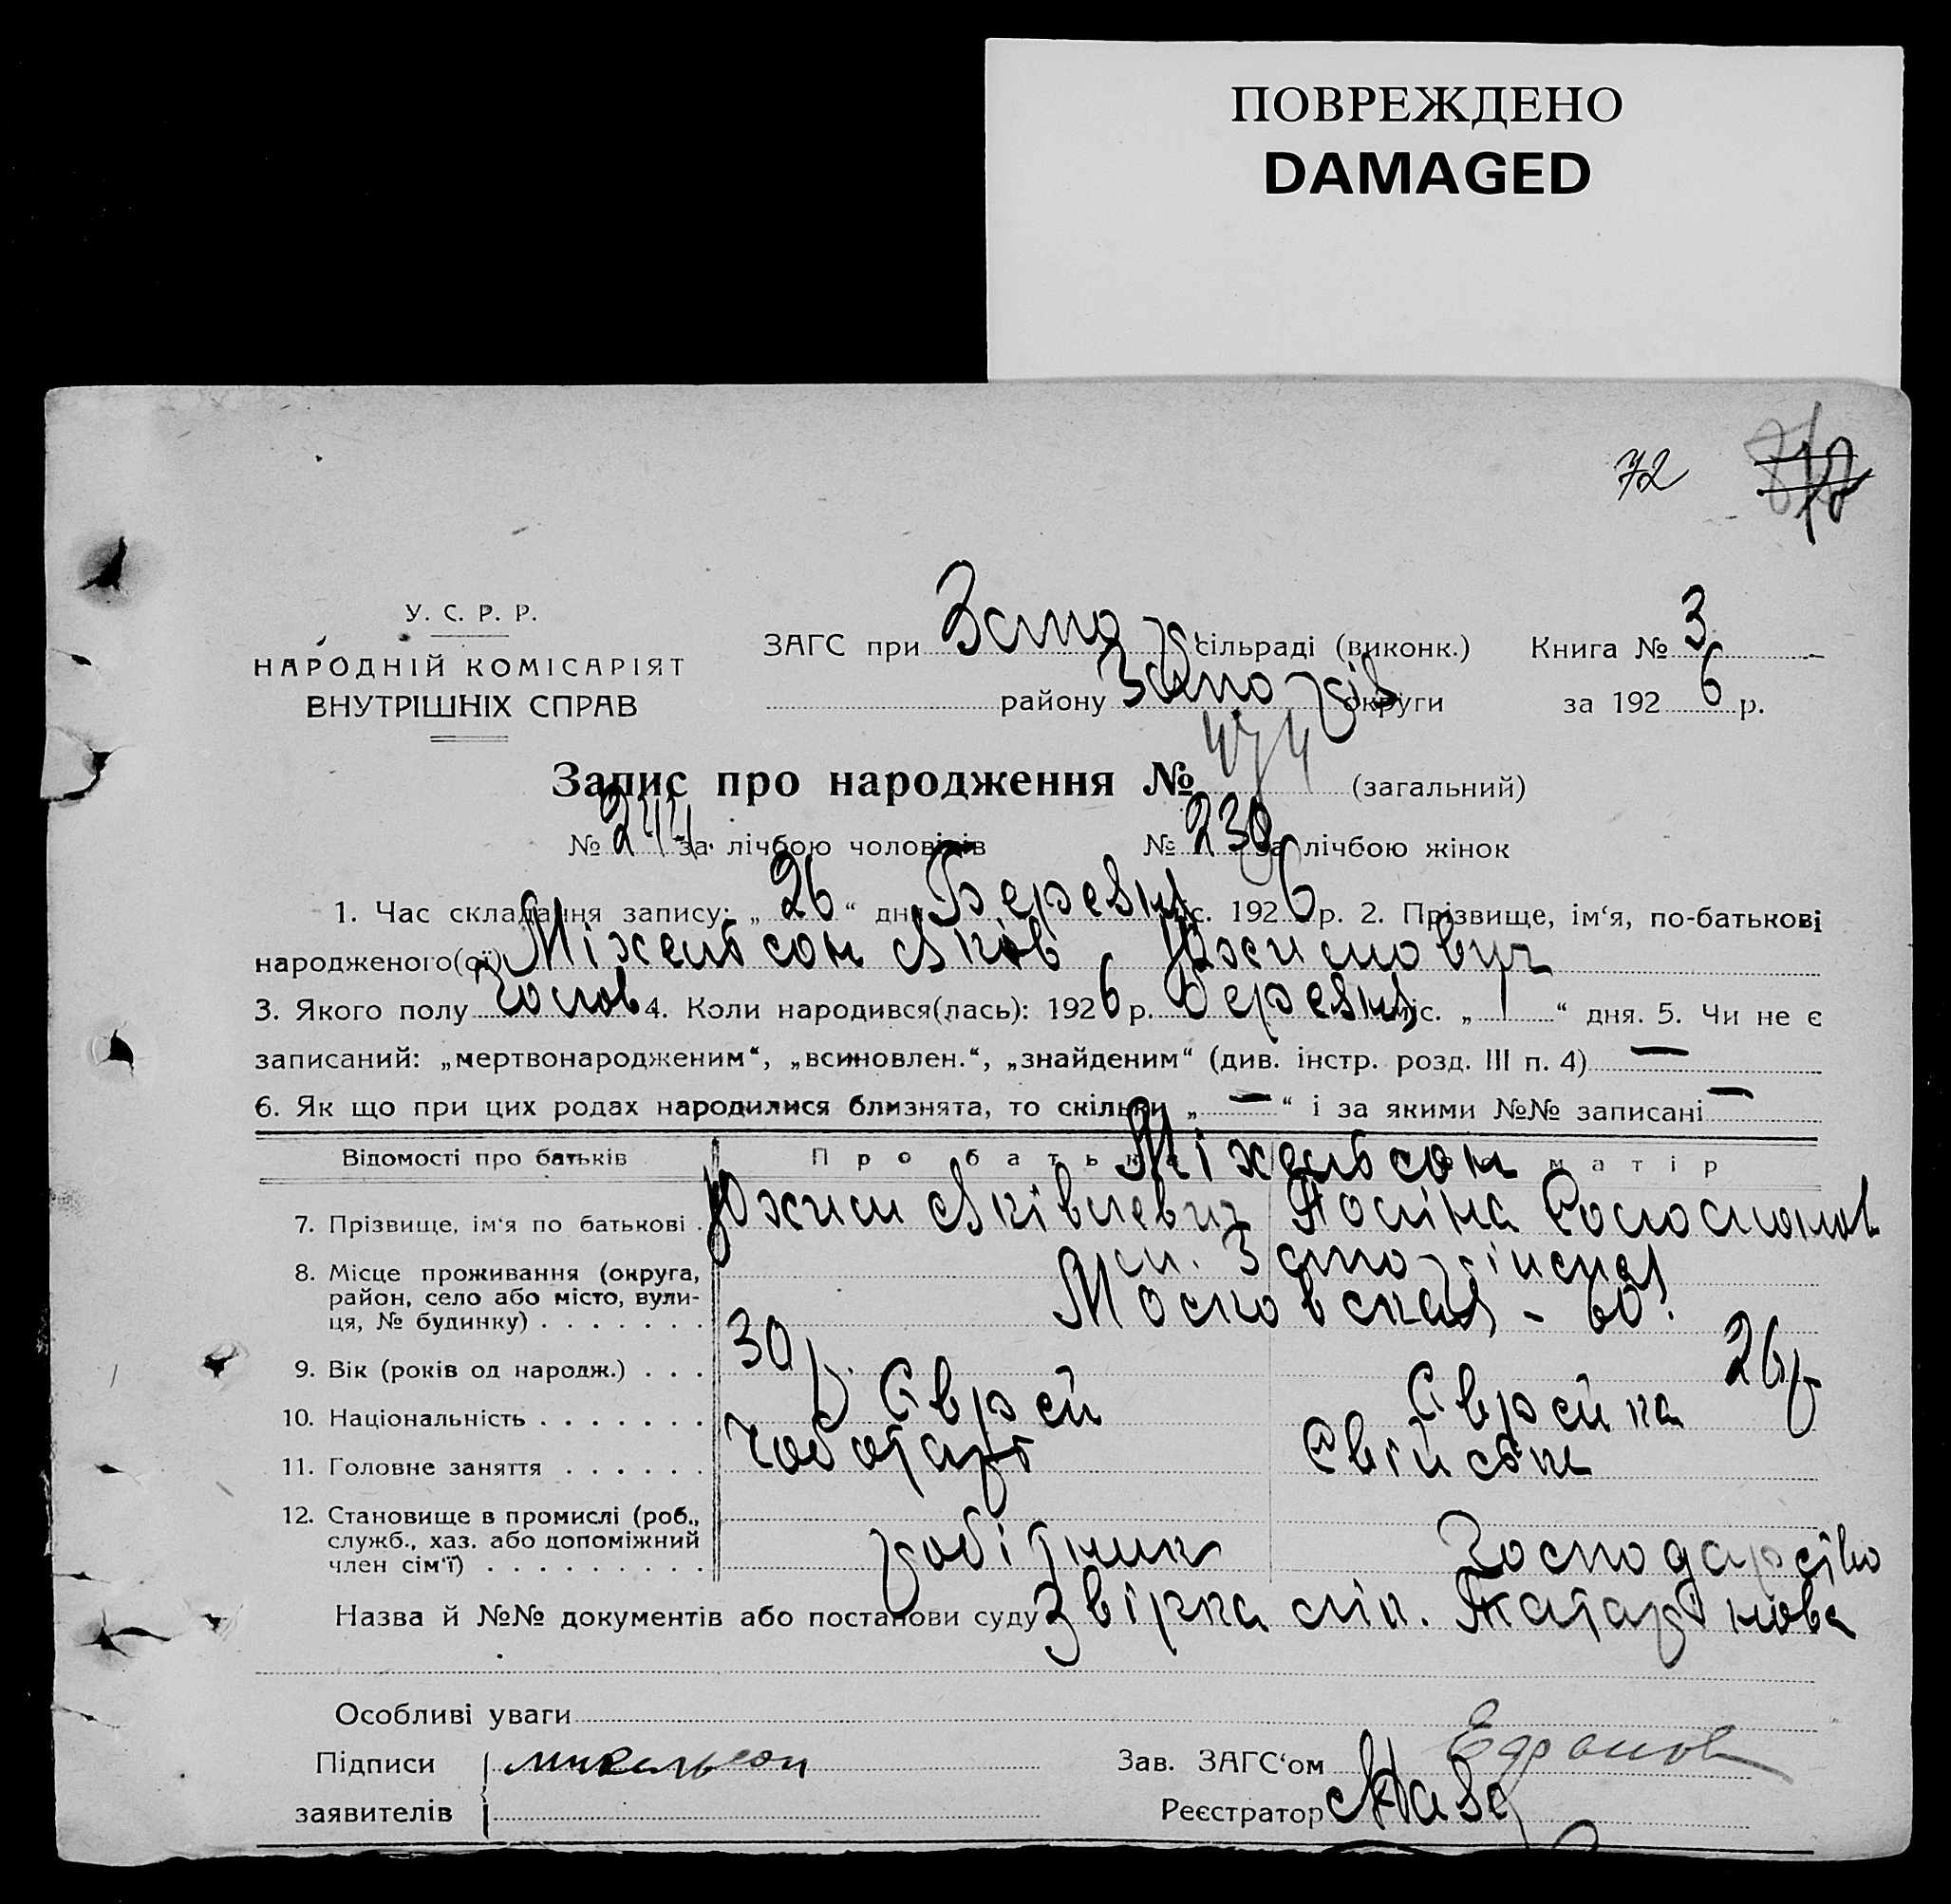 ПОВРЕЖДЕНО
DAMAGED
72
У. С. Р. Р.
НАРОДНІЙ КОМІСАРІЯТ
ВНУТРІШНІХ СПРАВ
ЗАГС при Запо сільраді (виконк.) Книга № 3
району Запорiз округи за 1926 р.
Запис про народження № 474 (загальний)
№ 244 за лічбою чоловіків № 230 за лічбою жінок
1. Час складання запису: „ 26 “ дня Березня міс. 1926 р. 2. Прізвище, ім‘я, по-батькові
народженого(ої) Міхельсон Яків Юхимович
3. Якого полу Чолов 4. Коли народився(лась): 1926 р. Березня міс. „ 1 “ дня. 5. Чи не є
записаний: „мертвонародженим“, „всиновлен.“, „знайденим“ (див. інстр. розд. III п. 4) —
6. Як що при цих родах народилися близнята, то скільки „ — “ і за якими №№ записані —
Відомості про батьків Про батька Міхельсон матір
7. Прізвище, ім‘я по батькові Юхим Яківлевич Поліна Соломонов
8. Місце проживання (округа, район, село або місто, вули-ця, № будинку) м. Запоріжжя
Московская - 60
9. Вік (років од народж.) 30 р. 26 р
10. Національність Єврей Єврейка
11. Головне заняття Чоботарь Свійське
12. Становище в промислі (роб., служб., хаз. або допоміжний член сім‘ї) робітник Господарство
Назва й №№ документів або постанови суду Звірка лік.
Особливі уваги
Підписи Михельсон Зав. ЗАГС‘ом
заявителів Реєстратор